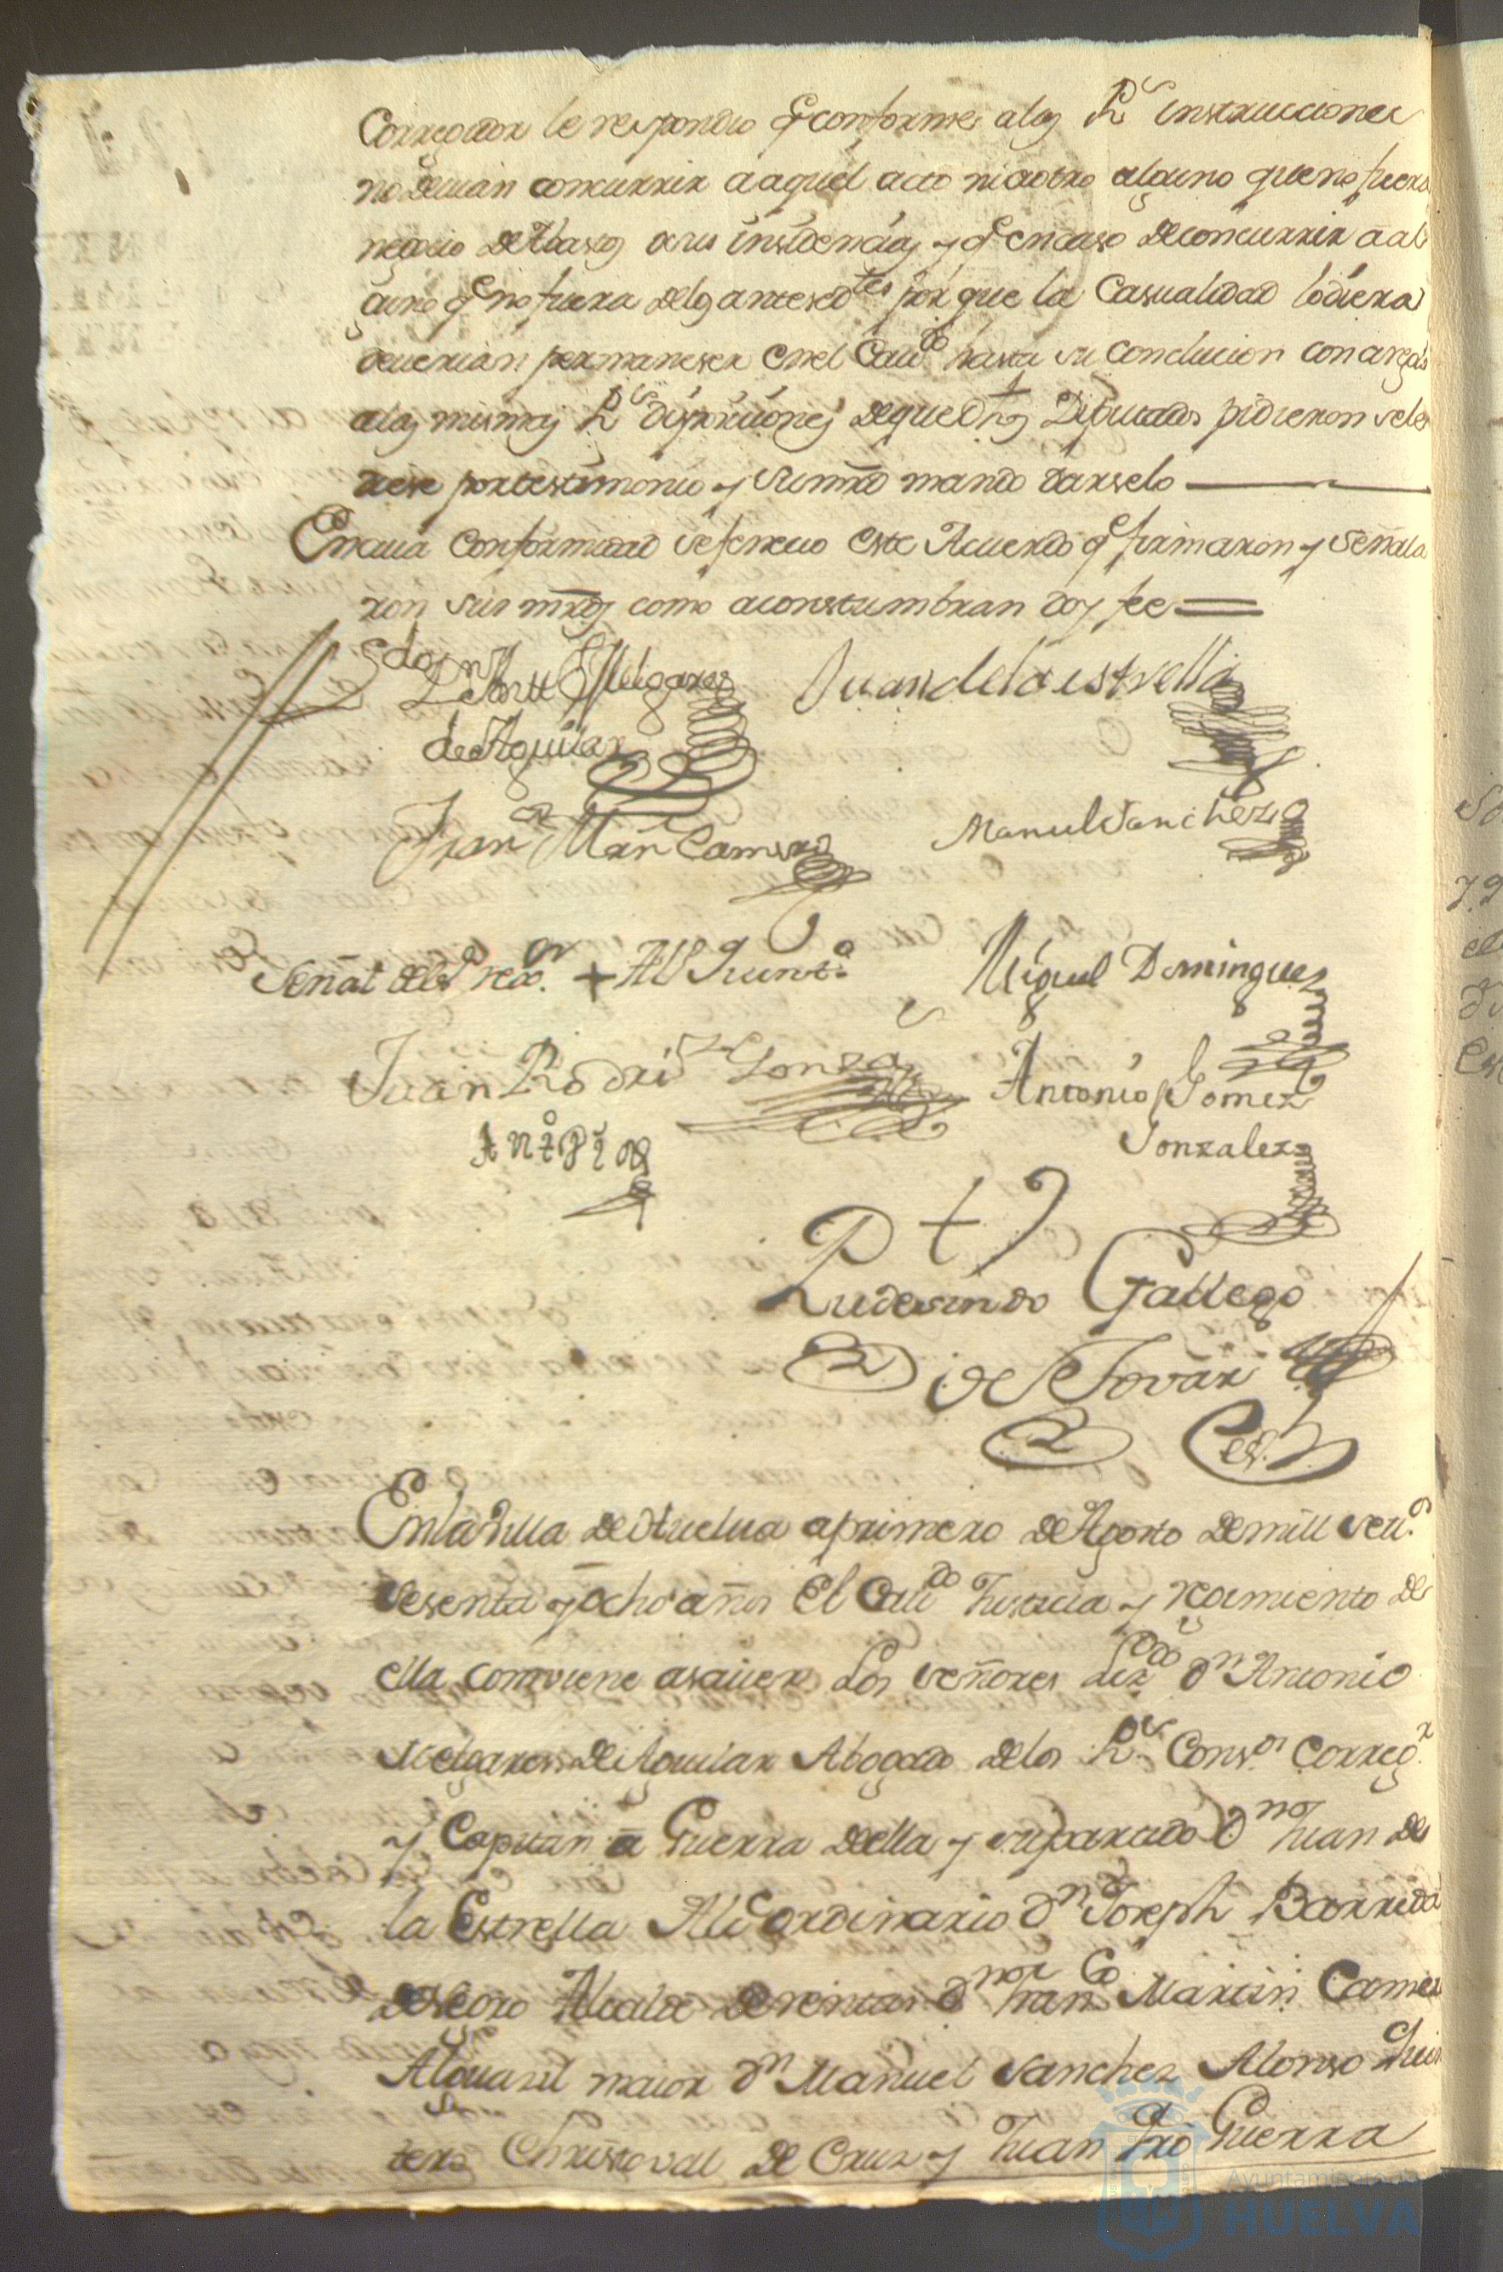 Corregidor le respondio q.e conforme alas R.s instrucciones
no devian concurrir a aquel acto ni aotro alguno que no fuera
negocio de Abastos o sus insidencias y q.e en caso de concurrir a al
guno q.e no fuera delos antesed.tes por que la Casualidad lo diera
deverian permaneser en el Cav.do hasta su conclucion con areglo
alas mismas R.s disposiciones de que d.hos Diputados pidieron se les
diese por testimonio y su mrd mando darselo
En cuia conformidad se fenecio este Acuerdo q.e firmaron y señala
ron sus mrds como acostumbran doy fee =
Lz.do Dn Antt Melgarejo
de Aguilar
Juan dela estrella
Fran.co Mrn Camero
Manuel Sanchez
Señal del Rexo.or + Al Quint.o
Miguel Dominguez
Juan Rodri Gonza
Antonio Gomez
Gonzalez
Rudesindo Gallego
de Tovar
Es.no
En la Villa de Huelva a primero de Agosto de mill setz.os
sesenta y ocho años El Cav.do Justicia y regimiento de
ella comviene asaver Los señores Liz.do Dn Antonio
Melgarejo de Aguilar Abogado delos R.s Cons.os Correg.r
y Capitan a Guerra de ella y su partido Dn Juan de
la Estrella Alc.e ordinario Dn Joseph Barreda
Alcalde Dn Fran.co Martin Camero
Alguasil maior Dn Manuel Sanchez Alonso Quin
tero Christoval de Cruz y Juan Fro Guerra
Ayuntamiento de
HUELVA